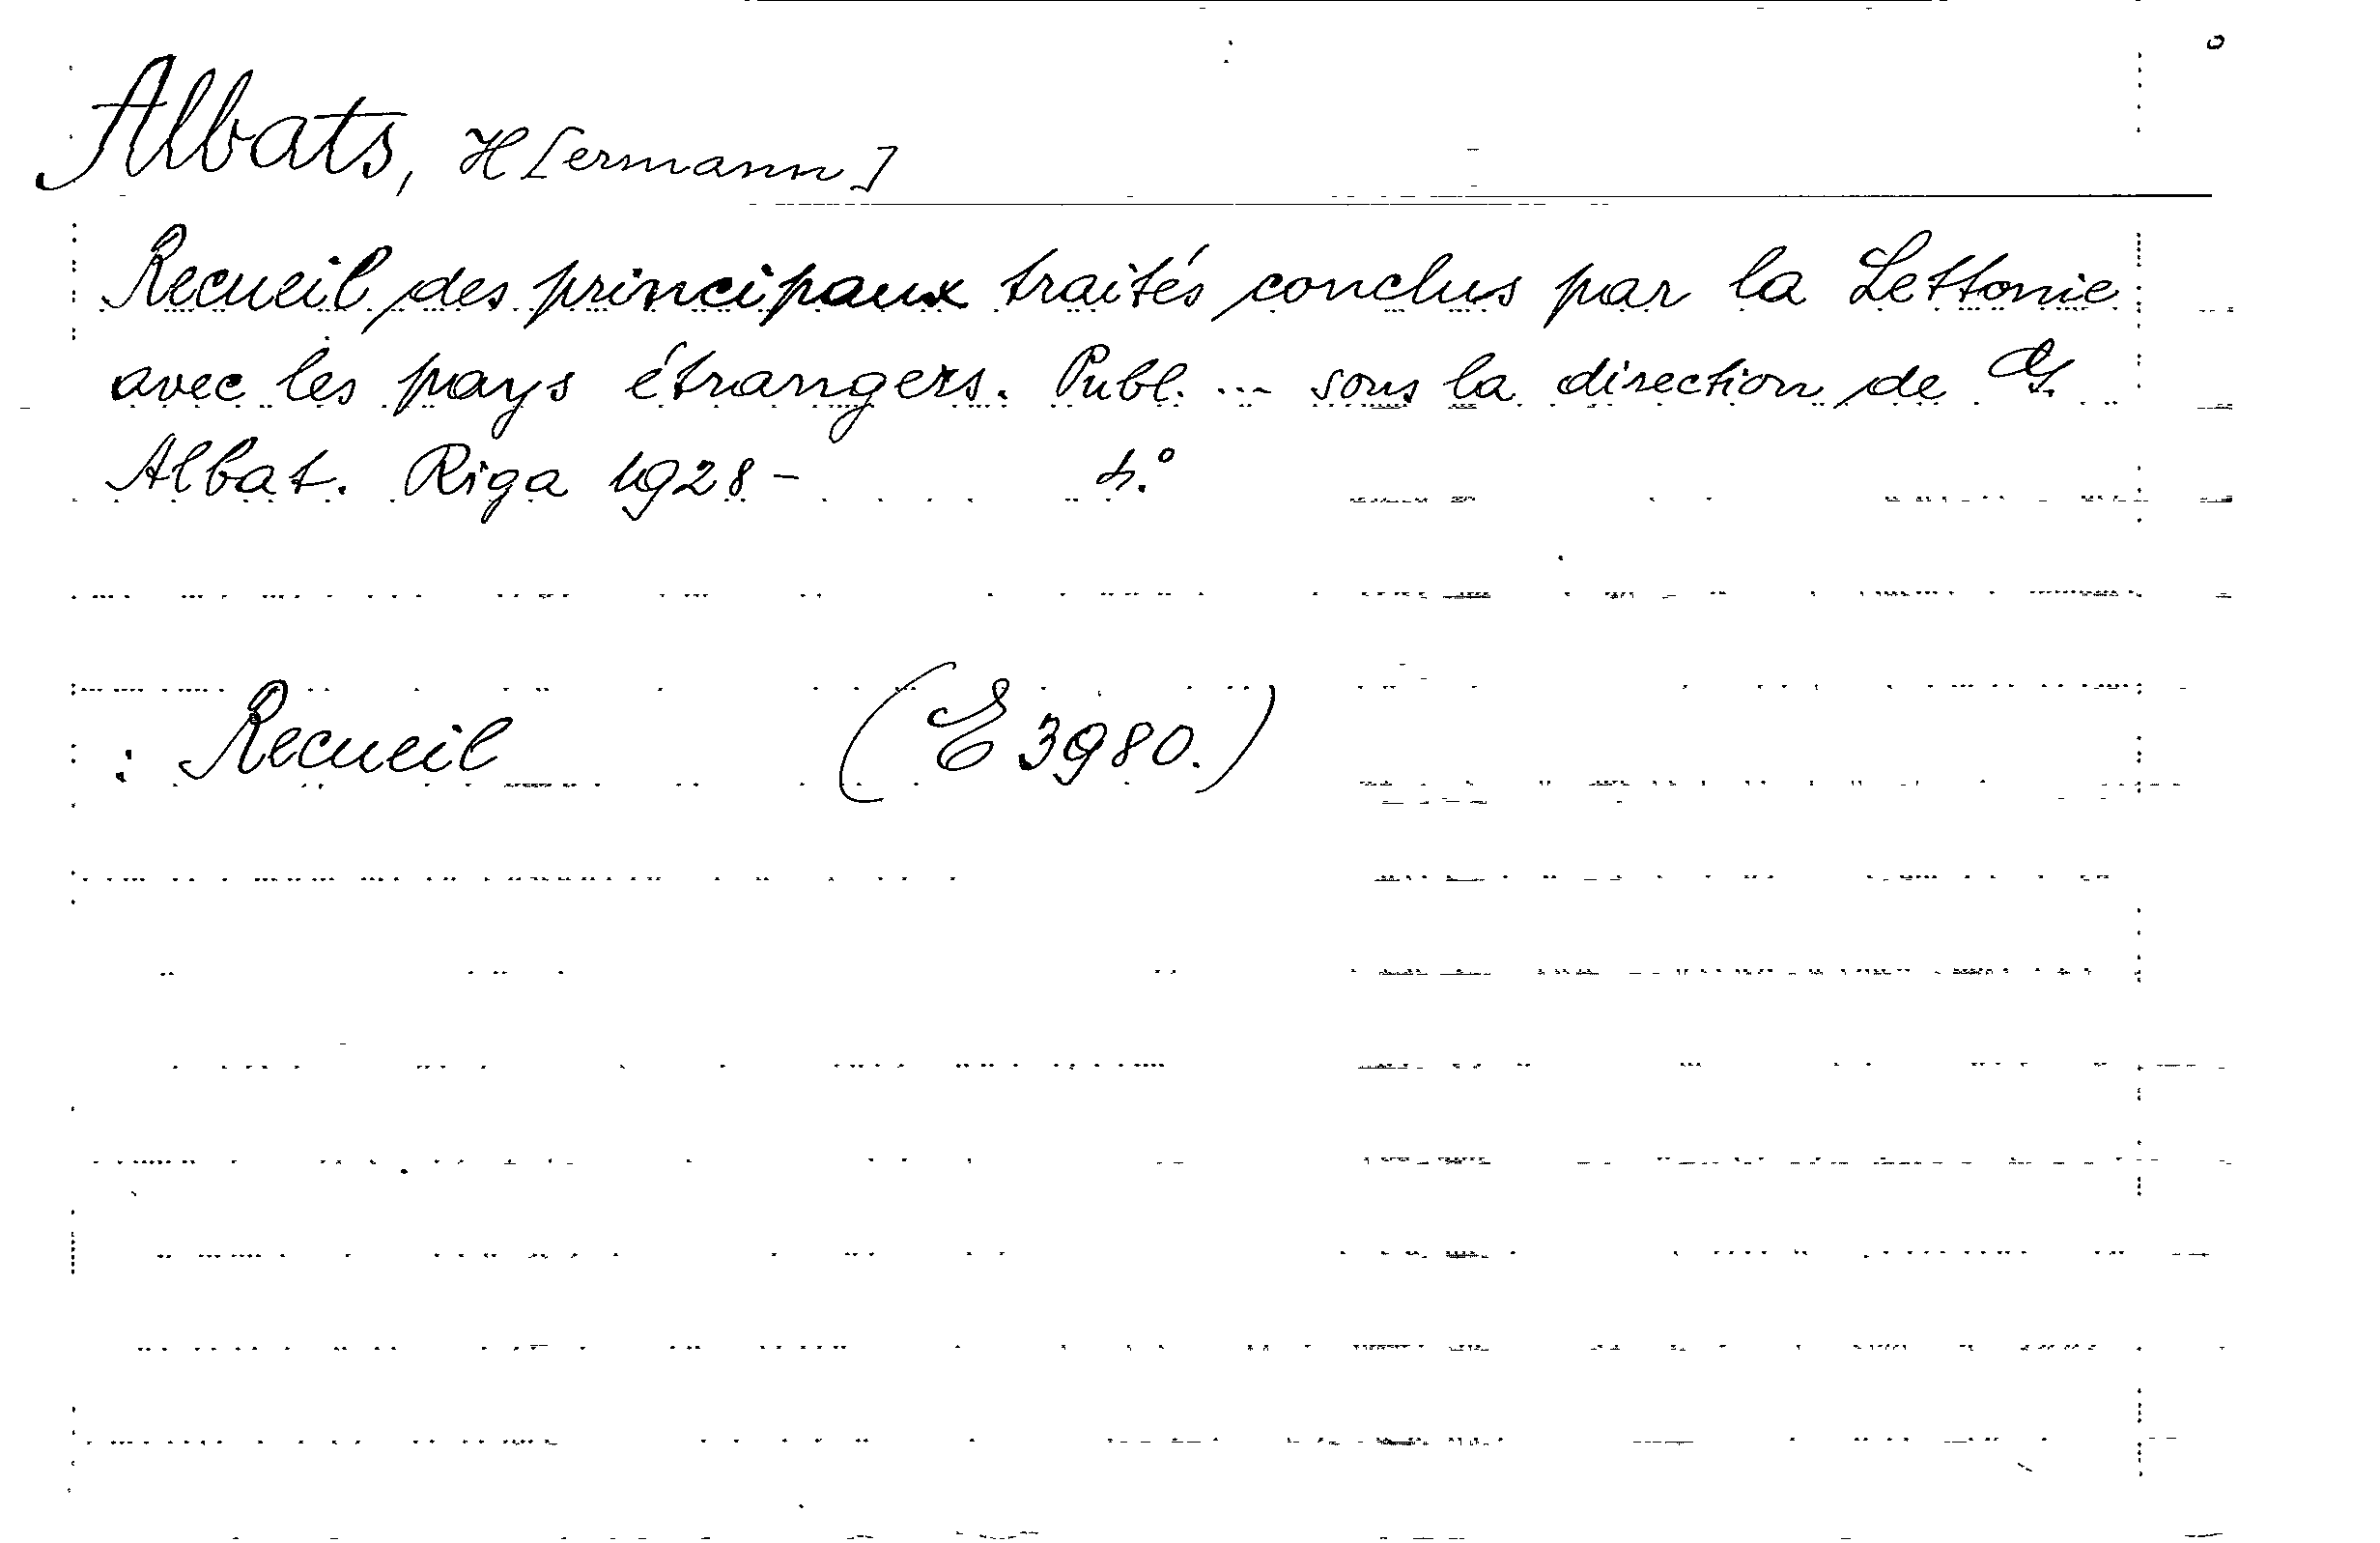 Albats, H[ermann]
Recueil des principaux traités conclus par la Lettonie
avec les pays étrangers. Publ. ... sous la direction de G.
Albat. Riga 1928 - 4.°
: Recueil (E 3980.)